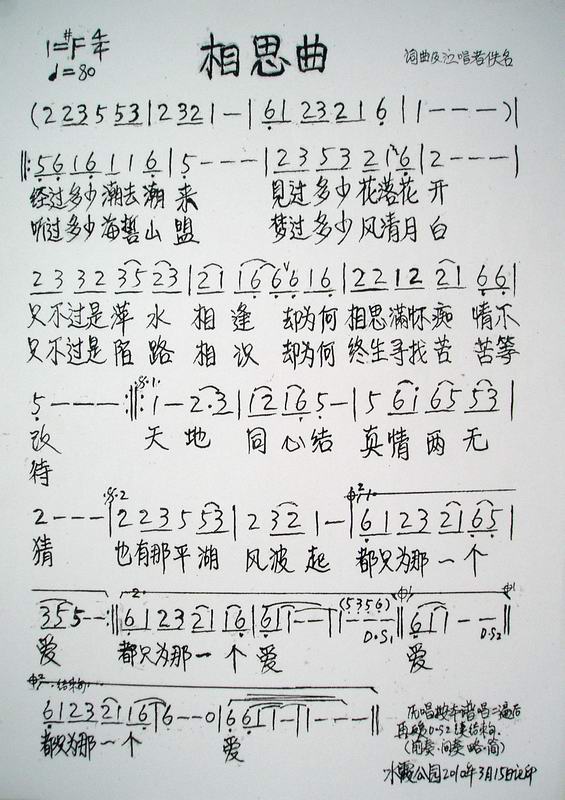 1=#F 4/4
♩=80
相思曲
词曲及泣唱者佚名
(2 2 3 5 5 3 | 2 3 2 1 - | 6 1 2 3 2 1 6 | 1 - - - )|
‖: 5 6 1 6 1 1 6 | 5 - - - | 2 3 5 3 2 1 6 | 2 - - - |
经过多少潮去潮来 见过多少花落花开
听过多少海誓山盟 梦过多少风清月白
2 3 3 2 3 5 2 3 | 2 1 1 6 6 6 1 6 | 2 2 1 2 2 1 6 6 |
只不过是萍水相逢 却为何相思满怀痴情不
只不过是陌路相识 却为何终生寻找苦苦等
5 - - - :‖: 1 - 2·3 | 1 2 1 6 5 - | 5 6 1 6 5 5 3 |
改 天地同心结 真情两无
待
2 - - - | 2 2 3 5 5 3 | 2 3 2 1 - | 6 1 2 3 2 1 6 5 |
猜 也有那平湖风波起 都只为那一个
3 5 5 - - :‖ 6 1 2 3 2 1 1 6 | 6 1 1 - - | 1 - - - (5 3 5 6) D.S1 ‖ 6 1 1 - - D.S2 ‖
爱 都只为那一个爱 爱
结束句
6 1 2 3 2 1 1 6 | 6 - - 0 | 6 6 1 1 - | 1 - - - ‖
都只为那一个 爱
唱按本谱唱二遍后
再D.S2接结束句
(前奏、间奏略、简)
水霞公园2010年3月15日记印